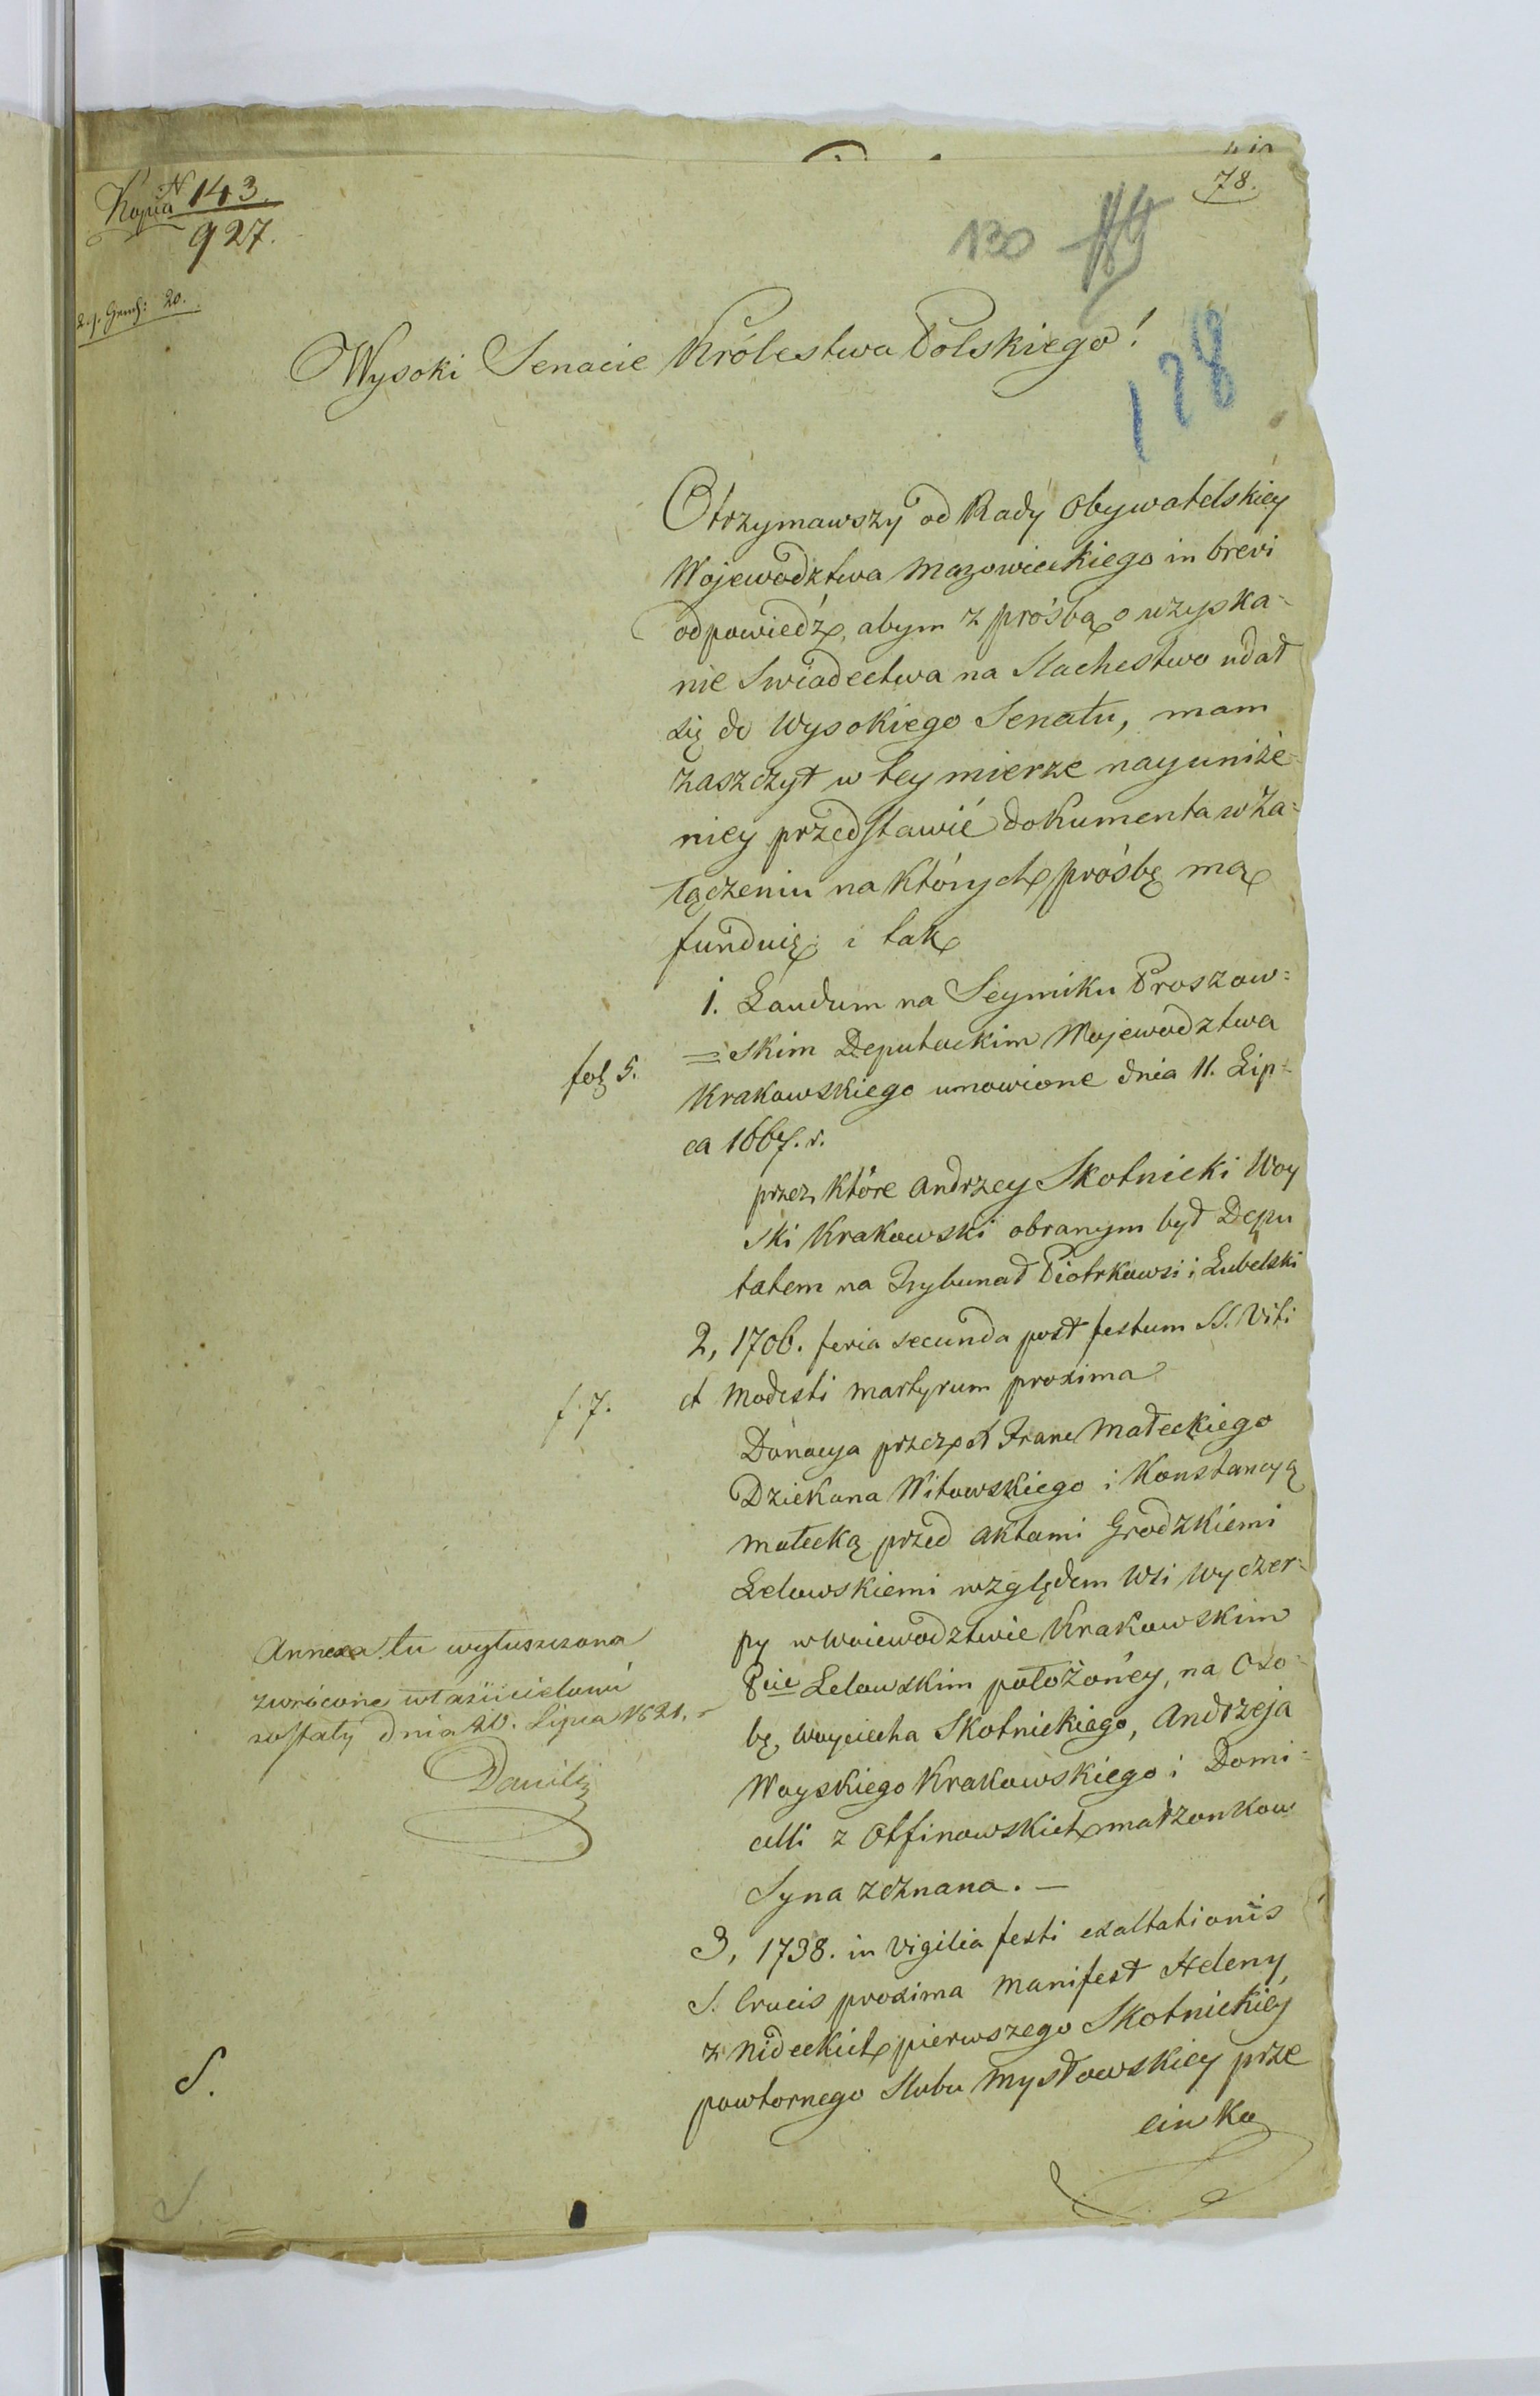 78.
Kopia N 143.
927.
130
128
Wysoki Senacie Królestwa Polskiego!
Otrzymawszy od Rady Obywatelskiey
Wojewodztwa Mazowieckiego in brevi
odpowiedź, abym z prośbą o uzyska-
nie Swiadectwa na Slachestwo udał
się do Wysokiego Senatu, mam
zaszczyt w tey mierze nayuniże-
niey przedstawić dokumenta w za-
łączeniu na których prośbę mą
funduię; i tak
1. Laudum na Seymiku Proszow=
fol 5. =skim Deputackim Wojewodztwa
Krakowskiego umowione dnia 11. Lip-
ca 1667. r.
przez które Andrzey Skotnicki Woy
ski Krakowski obranym był Depu
tatem na Trybunał Piotrkowsi i Lubelski
2, 1706. feria secunda post festum SS. Viti
f. 7. et Modesti Martyrum proxima
Donacya przez X Franc Małeckiego
Dziekana Witowskiego i Konstancyą
Małecką przed Aktami Grodzkiemi
Lelowskiemi względem Wsi Wyczer-
py w Woiewodztwie Krakowskim
Pcie Lelowskim położoney, na Oso-
bę Woyciecha Skotnickiego, Andrzeja
Woyskiego Krakowskiego i Domi-
celli z Otfinowskich małzonkow
Syna zeznana. —
Annexa tu wyłuszczone
zwrócone właścicielowi
zostały dnia 20. Lipca 1821.
3, 1738. in Vigilia festi exaltationis
S. Crucis proxima Manifest Heleny
z Nideckich pierwszego Skotnickiey
powtornego Slubu Mysłowskiey prze
ciwko
S.